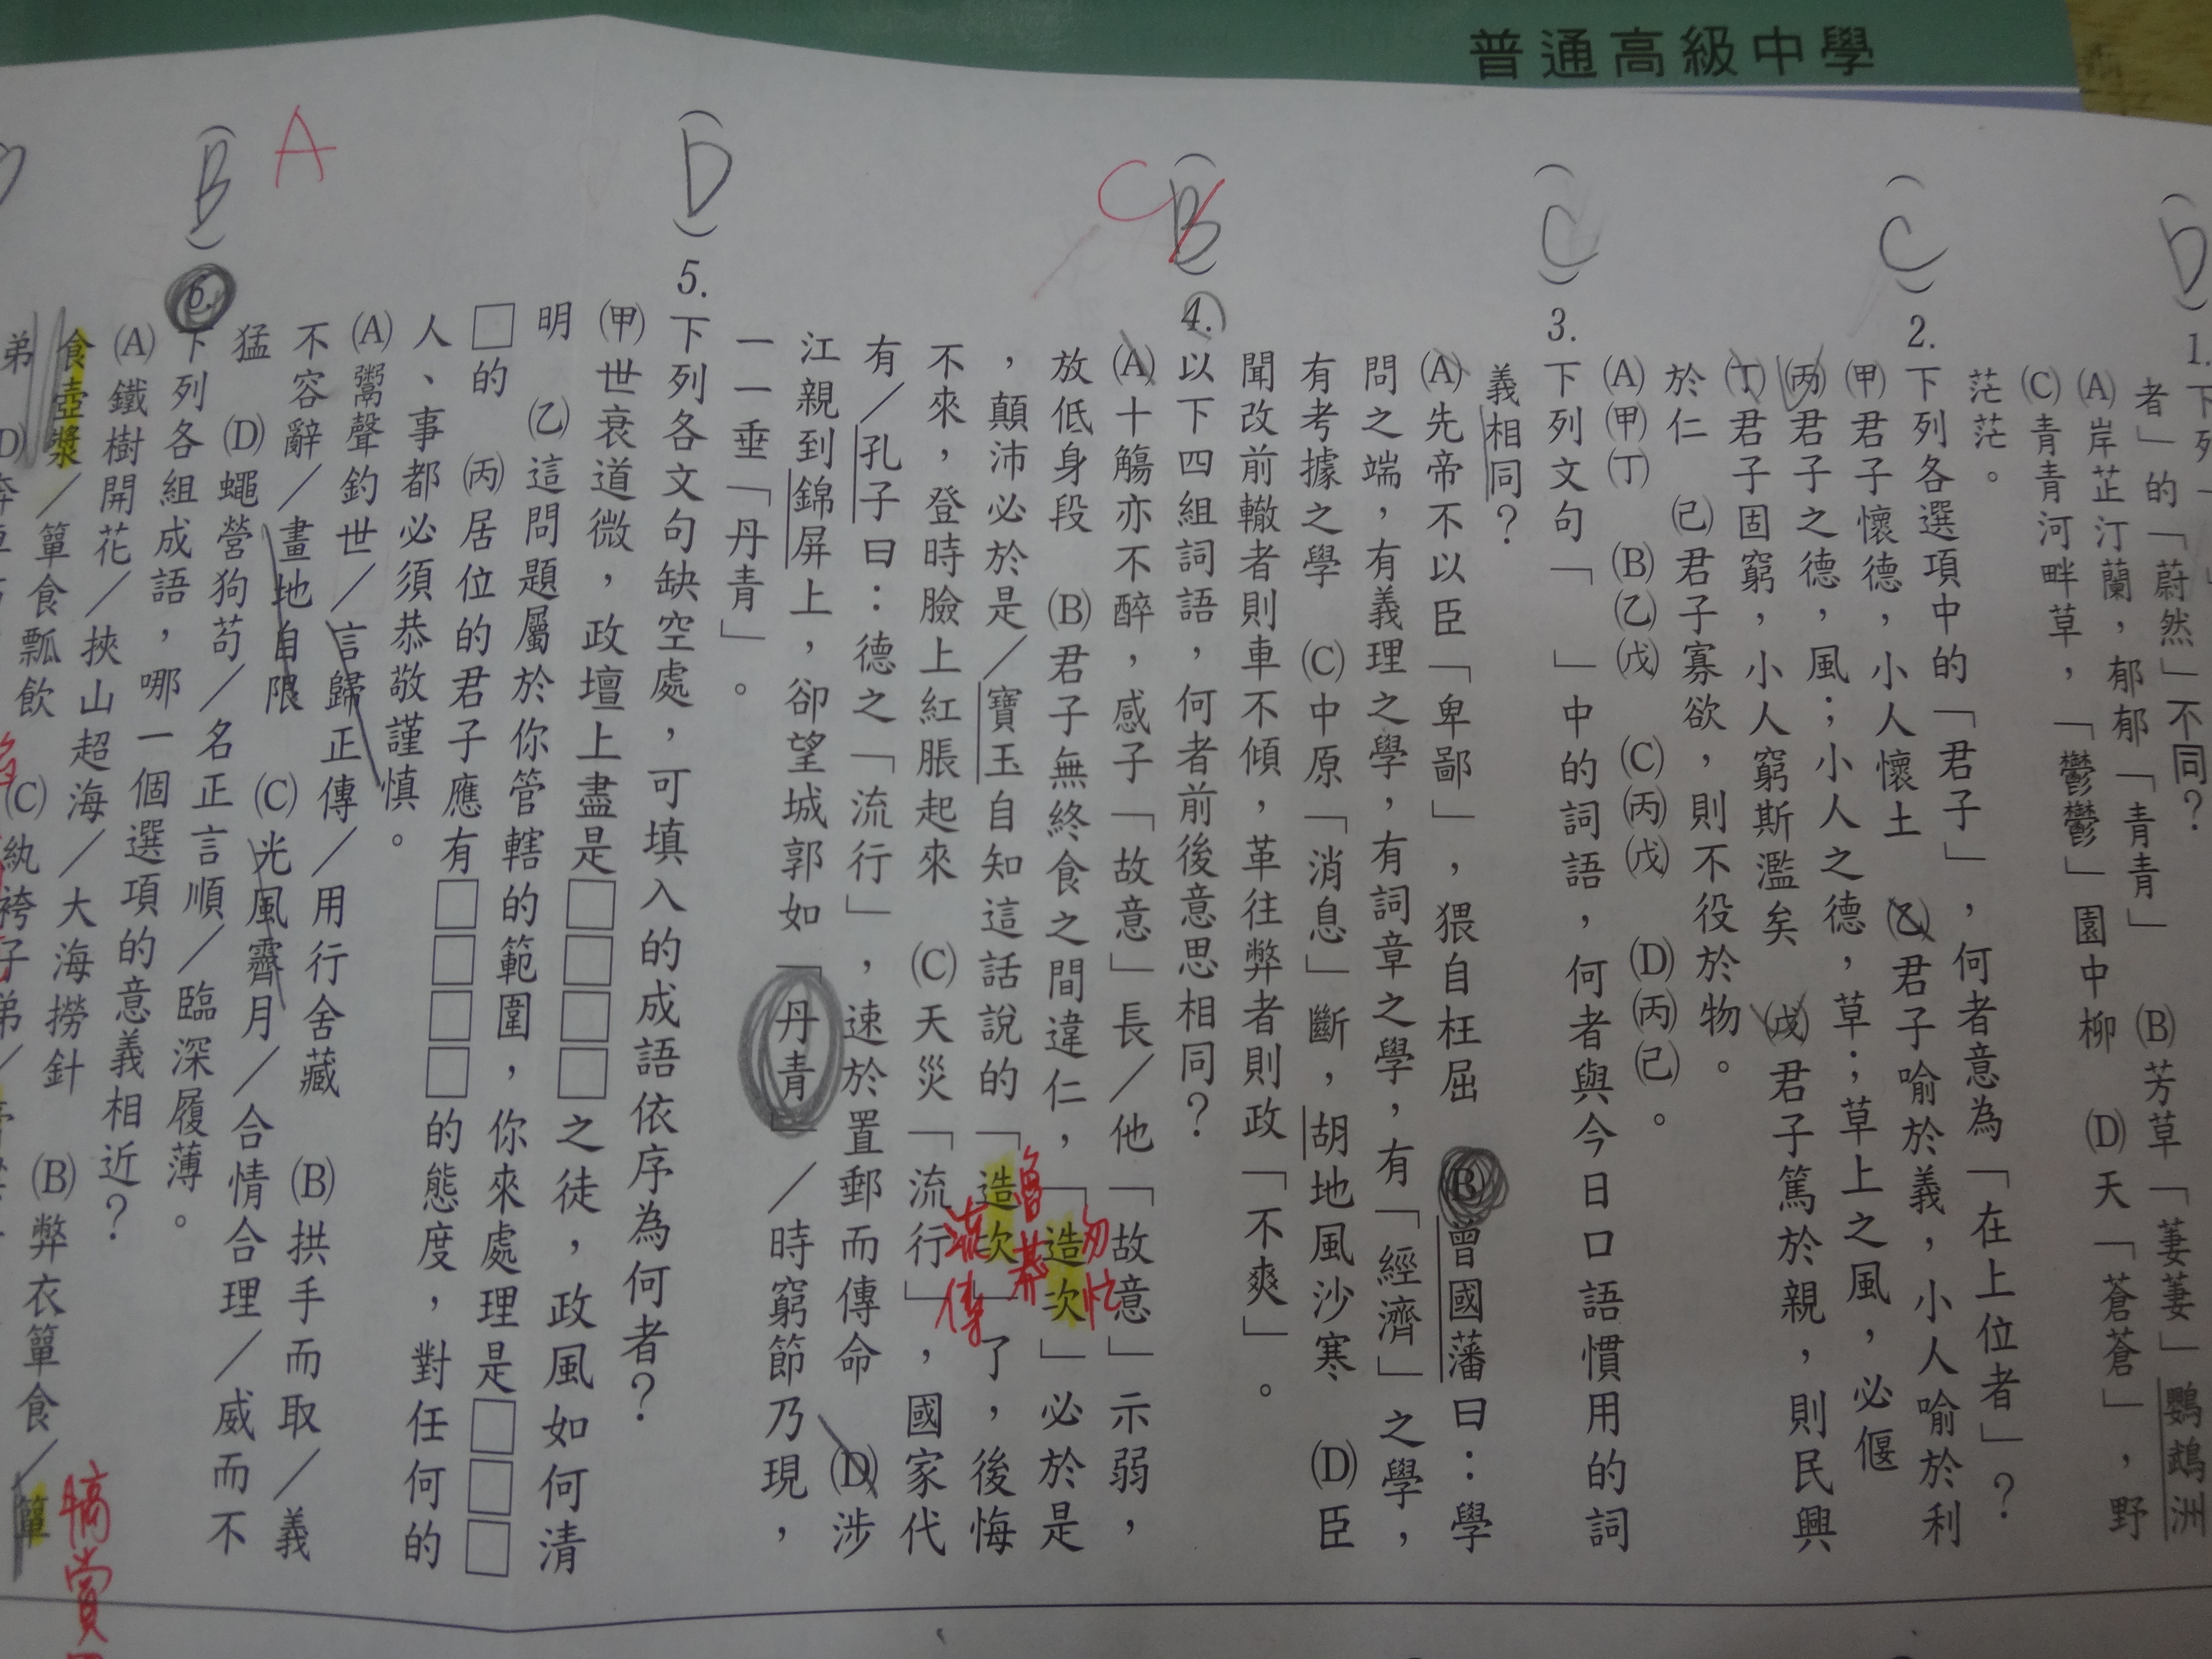 普通高級中學
(D) 1.下列
者」的「蔚然」不同?
(A)岸芷汀蘭,郁郁「青青」 (B)芳草「萋萋」鸚鵡洲
(C)青青河畔草,「鬱鬱」園中柳 (D)天「蒼蒼」,野
茫茫。
(C) 2.下列各選項中的「君子」,何者意為「在上位者」?
(甲)君子懷德,小人懷土 (乙)君子喻於義,小人喻於利
(丙)君子之德,風;小人之德,草;草上之風,必偃
(丁)君子固窮,小人窮斯濫矣 (戊)君子篤於親,則民興
於仁 (己)君子寡欲,則不役於物。
(A)(甲)(丁) (B)(乙)(戊) (C)(丙)(戊) (D)(丙)(己)。
(C) 3.下列文句「 」中的詞語,何者與今日口語慣用的詞
義相同?
(A)先帝不以臣「卑鄙」,猥自枉屈 (B)曾國藩曰:學
問之端,有義理之學,有詞章之學,有「經濟」之學,
有考據之學 (C)中原「消息」斷,胡地風沙寒 (D)臣
聞改前轍者則車不傾,革往弊者則政「不爽」。
C
(B) 4.以下四組詞語,何者前後意思相同?
(A)十觴亦不醉,感子「故意」長/他「故意」示弱,
放低身段 (B)君子無終食之間違仁,「造次」必於是
匆忙
,顛沛必於是/寶玉自知這話說的「造次」了,後悔
魯莽
不來,登時臉上紅脹起來 (C)天災「流行」,國家代
流傳
有/孔子曰:德之「流行」,速於置郵而傳命 (D)涉
江親到錦屏上,卻望城郭如「丹青」/時窮節乃現,
一一垂「丹青」。
(D) 5.下列各文句缺空處,可填入的成語依序為何者?
(甲)世衰道微,政壇上盡是□□□□之徒,政風如何清
明 (乙)這問題屬於你管轄的範圍,你來處理是□□□
□的 (丙)居位的君子應有□□□□的態度,對任何的
人、事都必須恭敬謹慎。
(A)鬻聲釣世/言歸正傳/用行舍藏 (B)拱手而取/義
不容辭/畫地自限 (C)光風霽月/合情合理/威而不
猛 (D)蠅營狗苟/名正言順/臨深履薄。
A
(B) 6.下列各組成語,哪一個選項的意義相近?
(A)鐵樹開花/挾山超海/大海撈針 (B)弊衣簞食/簞
食壺漿/簞食瓢飲 (C)紈袴子弟/
犒賞
弟 (D)